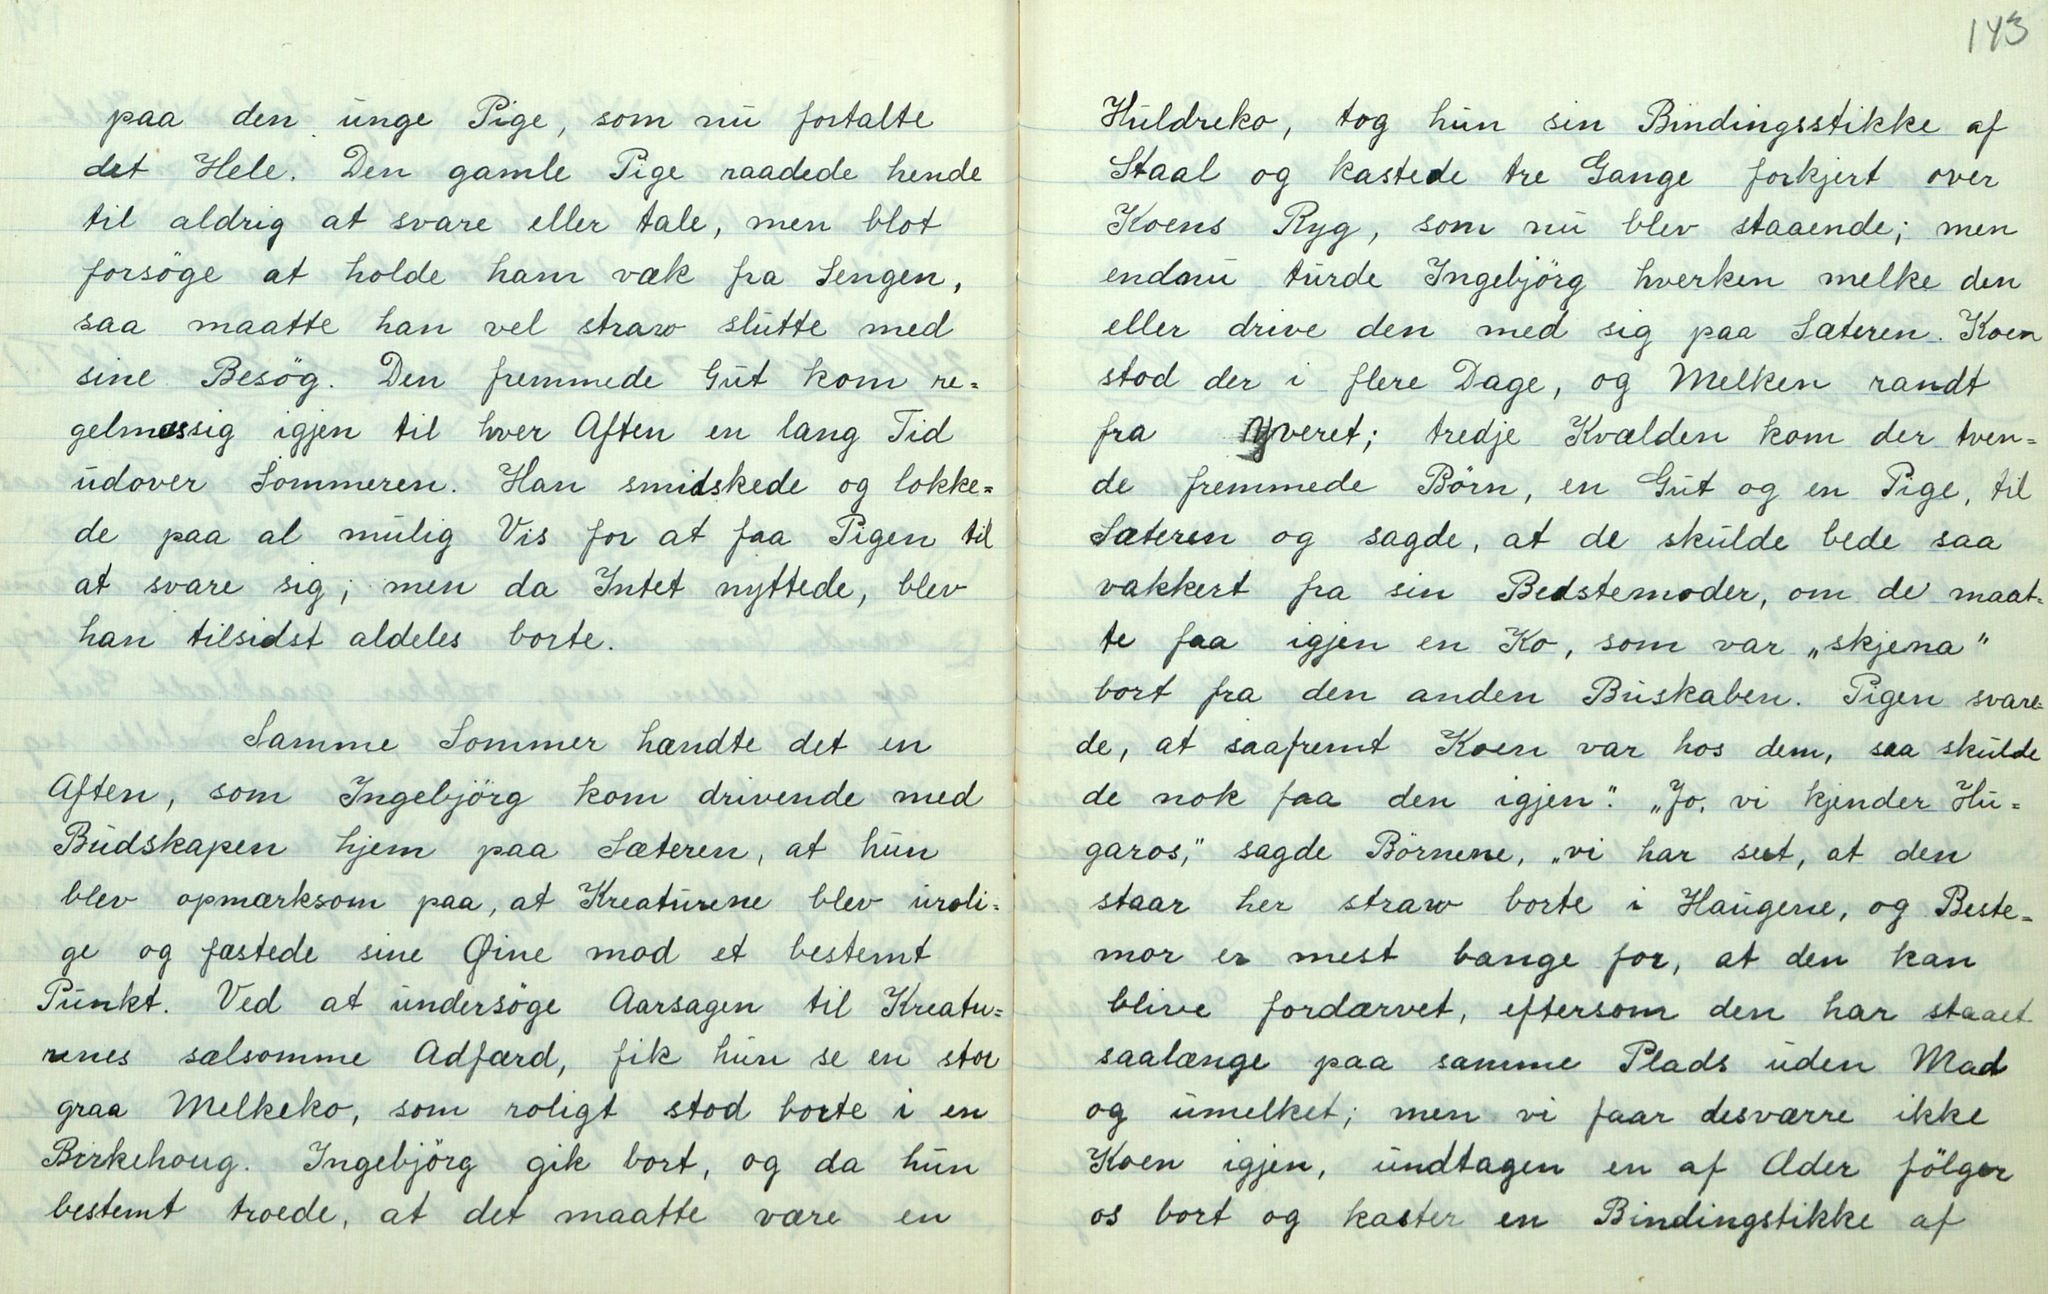 paa den unge Pige, som nu fortalte
det Hele. Den gamle Pige raadede hende
til aldrig at svare eller tale, men blot
forsöge at holde ham væk fra Sengen,
saa maatte han vel strax slutte med
sine Besög. Den fremmede Gut kom re-
gelmæssig igjen til hver Aften en lang Tid
udover Sommeren. Han smidskede og lokke-
de paa al mulig Vis for at faa Pigen til
at svare sig; men da Intet nyttede, blev
han tilsidst aldeles borte.
Samme Sommer hændte det en
Aften, som Ingebjörg kom drivende med
Budskapen hjem paa Sæteren, at hun
blev opmærksom paa, at Kreaturene blev uroli-
ge og fæstede sine Øine mod et bestemt
Punkt. Ved at undersöge Aarsagen til Kreatu-
renes sælsomme Adfærd, fik hun se en stor
graa Melkeko, som roligt stod borte i en
Birkehoug. Ingebjörg gik bort, og da hun
bestemt troede, at det maatte være en
143
Huldreko, tog hun sin Bindingsstikke af
Staal og kastede tre Gange forkjert over
Koens Ryg, som nu blev staaende; men
endnu turde Ingebjörg hverken melke den
eller drive den med sig paa Sæteren. Koen
stod der i flere Dage, og Melken randt
fra Yveret; tredje Kvælden kom der tven-
de fremmede Börn, en Gut og en Pige, til
Sæteren og sagde, at de skulde bede saa
vakkert fra sin Bedstemoder, om de maat-
te faa igjen en Ko, som var „skjena"
bort fra den anden Buskaben. Pigen svare-
de, at saafremt Koen var hos dem, saa skulde
de nok faa den igjen". „Jo, vi kjender Hu-
garos," sagde Börnene, „vi har seet, at den
staar her strax borte i Haugene, og Beste-
mor er mest bange for, at den kan
blive fordærvet, eftersom den har staaet
saalænge paa samme Plads uden Mad
og umelket; men vi faar desværre ikke
Koen igjen, undtagen en af Eder fölger
os bort og kaster en Bindingstikke af